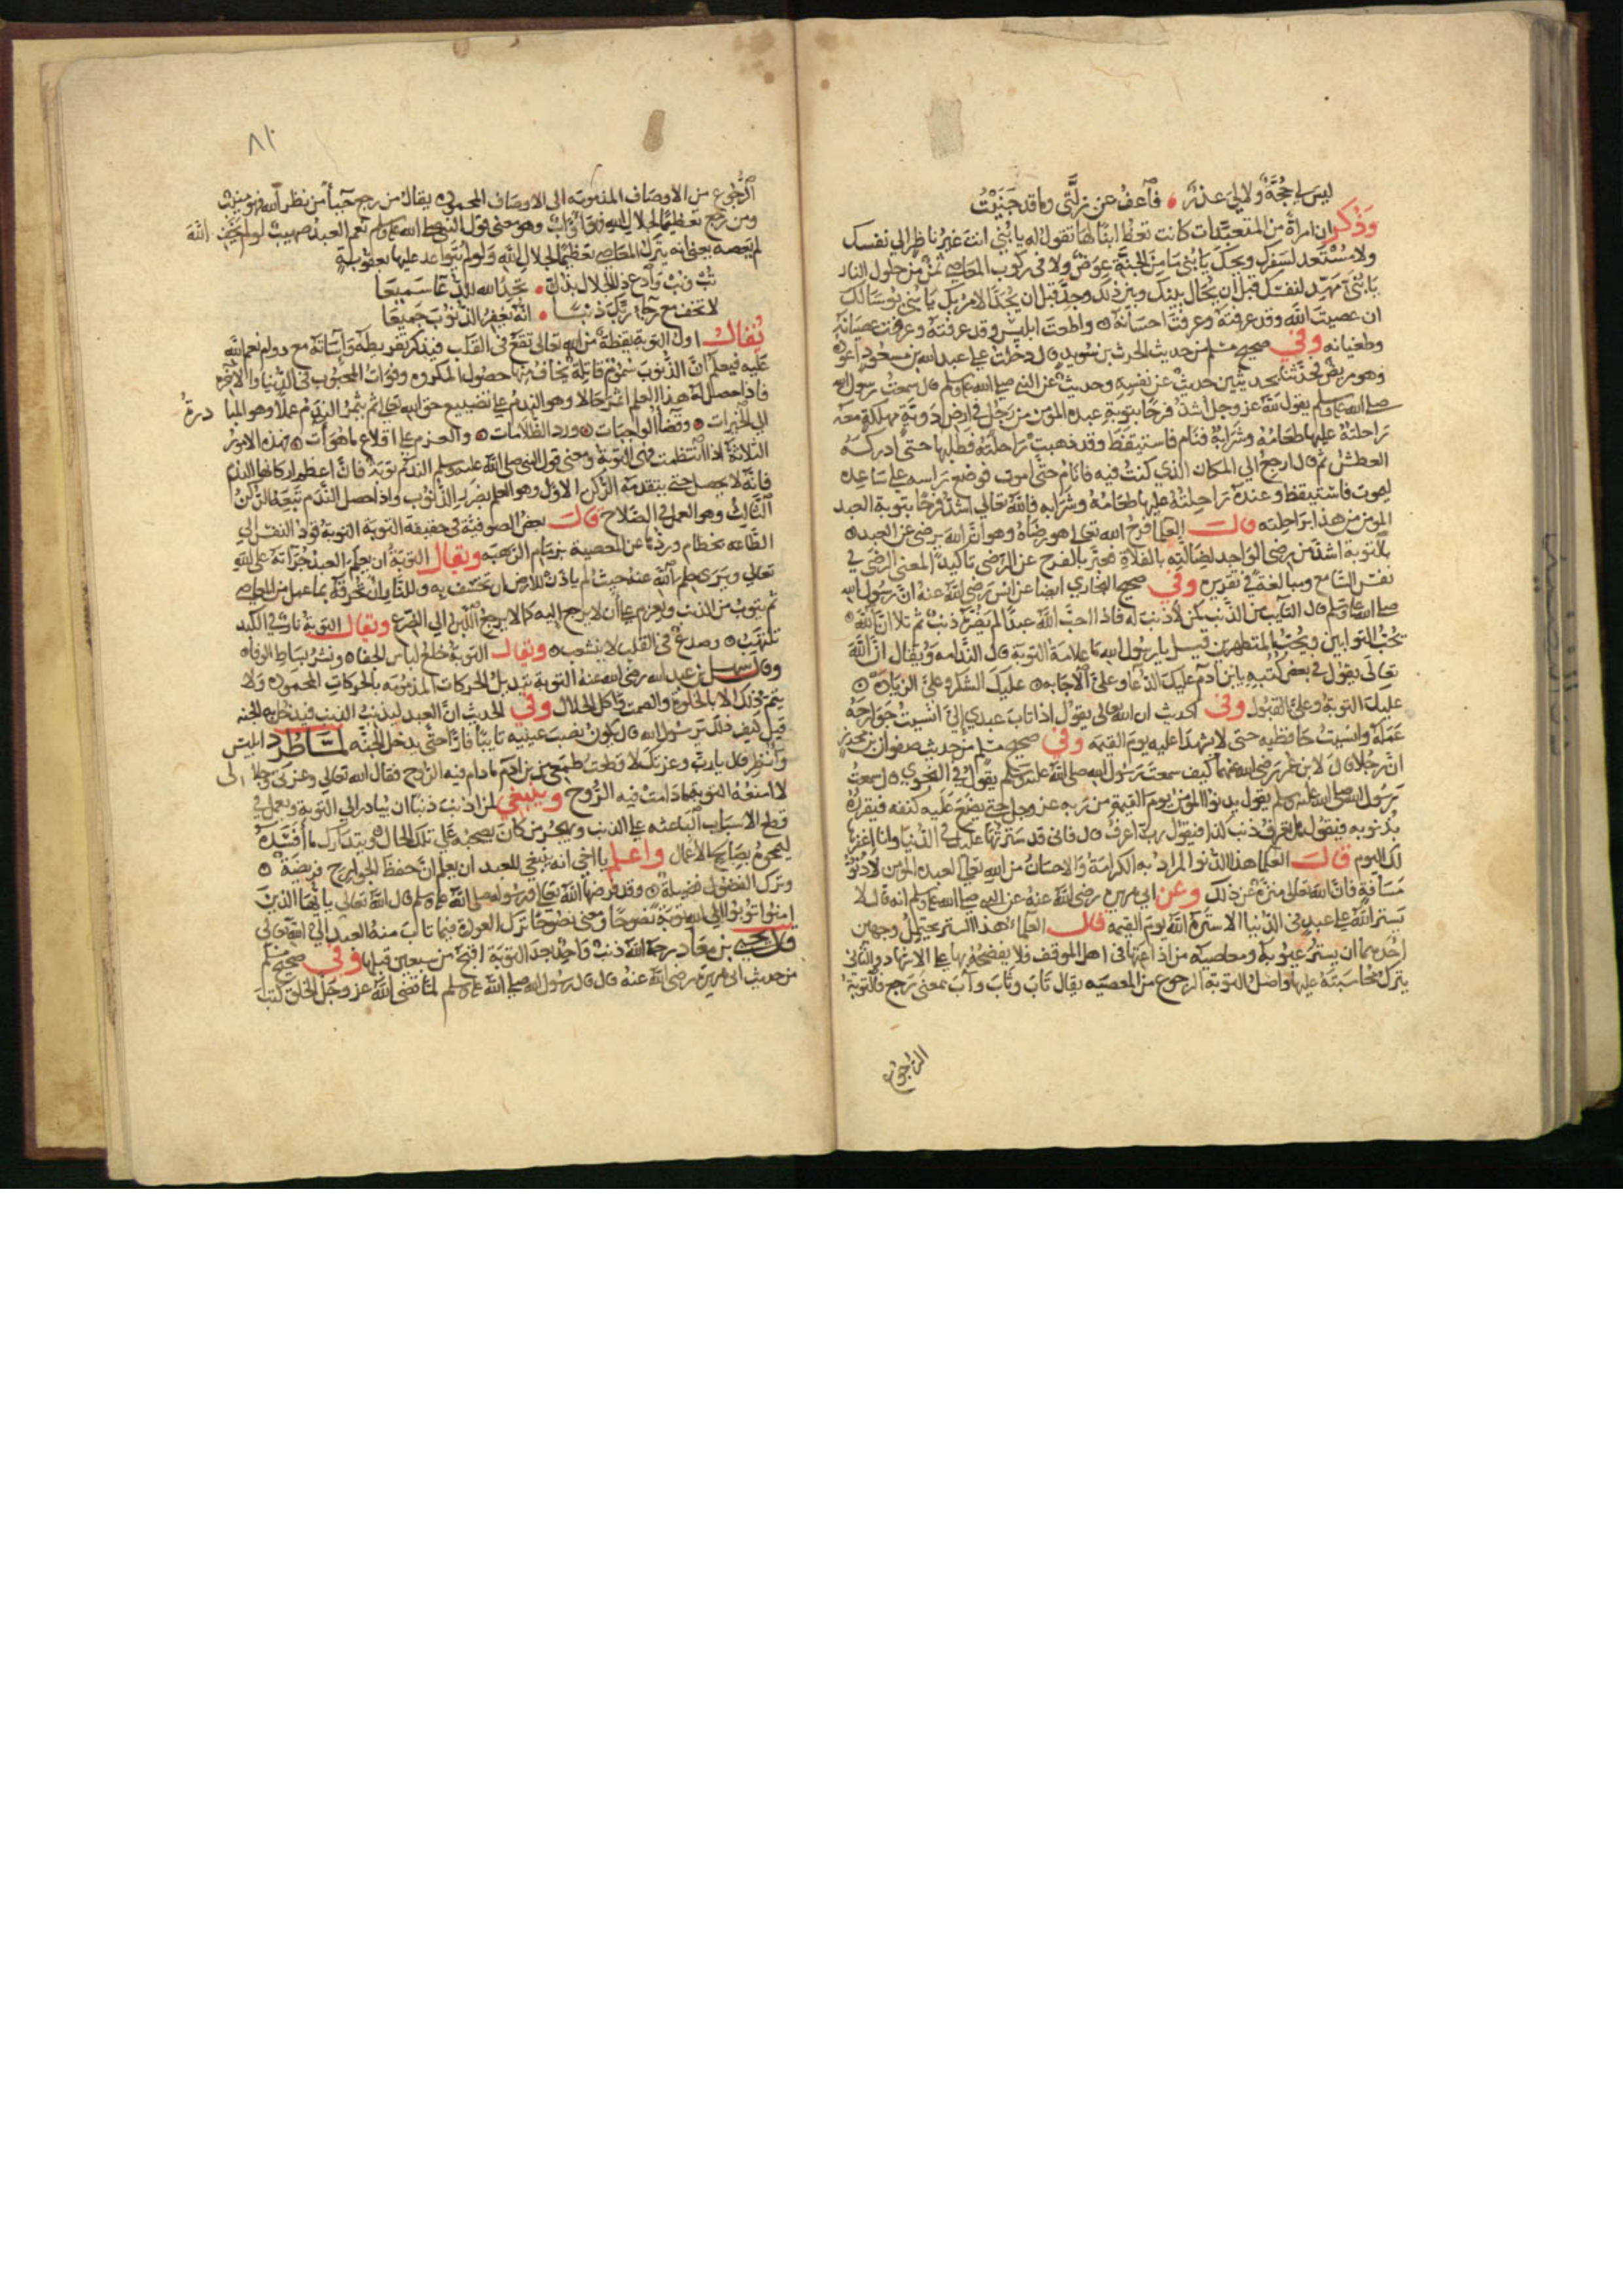 ليس لي حجة ولا لي عذر فاعف عن زلتي وما قد جنيت
وذكر ان امرأة من المتعبدات كانت تعظ ابنا لها تقول له يا بني انت غير ناظر الي نفسك
ولا مستعد لسفرك ويحك يا بني ما من الجنة عوض ولا في ركوب المعاصي ثمن من حلول النار
يا بني مهد لنفسك قبل ان يحال بينك وبين ذلك وجد قبل ان يجد الامر بك يا بني
ان عصيت الله وقد عرفته وعرفت احسانه واطعت ابليس وقد عرفته وعرفت عصيانه
وطغيانه وفي صحيح مسلم من حديث الحرث بن سويد قال دخلت علي عبد الله بن مسعود اعوده
وهو مريض فحدثنا بحديثين حديث عن نفسه وحديث عن النبي صلي الله عليه وسلم قال سمعت رسول الله
صلي الله عليه وسلم يقول لله عز وجل اشد فرحا بتوبة عبده المؤمن من رجل في ارض دوية مهلكة معه
راحلته عليها طعامه وشرابه فنام فاستيقظ وقد ذهبت راحلته فطلبها حتى ادركه
العطش ثم قال ارجع الي المكان الذي كنت فيه فانام حتى اموت فوضع راسه علي ساعده
ليموت فاستيقظ وعنده راحلته عليها طعامه وشرابه فالله تعالي اشد فرحا بتوبة العبد
المومن من هذا براحلته قالت العلما فرح الله تعالي هو رضاه وهو ان الله يرضى عن العبد
بالتوبة اشد من رضي الواجد لضالته بالفلاة فعبر بالفرح عن الرضى تاكيدا لمعنى الرضى في
نفس السامع ومبالغة في تقديره وفي صحيح البخاري ايضا عن انس رضي الله عنه ان رسول الله
صلي الله عليه وسلم قال التايب من الذنب كمن لا ذنب له فاذا احب الله عبدا لم يضره ذنب ثم تلا ان الله
يحب التوابين ويحب المتطهرين قيل يا رسول الله ما علامة التوبة قال الندامة ويقال ان الله
تعالى يقول في بعض كتبه يا ابن ادم عليك الدعا وعلي الاجابه عليك الشكر وعلي الزيادة
عليك التوبة وعلي القبول وفي الحديث ان الله تعالى يقول اذا تاب عبدي الي انسيت جوارحه
عمله وانسيت حافظيه حتى لا يشهدا عليه يوم القيمة وفي صحيح مسلم من حديث صفوان بن محرز
ان رجلا قال لابن عمر رضي الله عنهما كيف سمعت رسول الله صلي الله عليه وسلم يقول في النجوي قال سمعت
رسول الله صلي الله عليه وسلم يقول يدنو المؤمن يوم القيمة من ربه عز وجل حتى يضع عليه كنفه فيقرره
بذنوبه فيقول هل تعرف ذنب كذا فيقول رب اعرف قال فاني قد سترتها عليك في الدنيا وانا اغفرها
لك اليوم قالت العلما هذا الدنو المراد به الكرامة والاحسان من الله تعالي لعبده المومن لا دنو
مسافة فان الله تعالى منزه عن ذلك وعن ابي هريره رضي الله عنه عن النبي صلي الله عليه وسلم انه قال لا
يستر الله علي عبد في الدنيا الا ستره الله يوم القيمه قال العلما هذا الستر يحتمل وجهين
احدهما ان يستر عيوبه ومعاصيه من اذاعتها في اهل الموقف فلا يفضحه بها علي الاشهاد والثاني
يترك محاسبته عليها واصل التوبة الرجوع من المعصيه يقال تاب وثاب وآب بمعنى رجع فالتوبة
الرجوع
٨١٠
الرجوع من الاوصاف المذمومه الي الاوصاف المحموده يقال من رجع حياء من نظر الله فهو منيب
ومن رجع تعظيما لجلال الله فهو اواب وهو معنى قول النبي صلي الله عليه وسلم نعم العبد صهيب لو لم يخف الله
لم يعصه يعني انه يترك المعاصي تعظيما لجلال الله ولو لم يتواعد عليها بعقوبة
تب وثب وادع ذا الجلال تجد الله للدعا سميعا
لا تخف مع رجاء ربك ذنبا انه يغفر الذنوب جميعا
يقال اول التوبة يقظة من الله تعالى تقع في القلب فيذكر تفريطه واساته مع دوام نعم الله
عليه فيعلم ان الذنوب سموم قاتلة يخاف منها حصول المكروه وفوات المحبوب في الدنيا والاخره
فاذا حصل له هذا العلم اثمر حالا وهو الندم علي تضييع حق الله تعالي ثم يثمر الندم عملا وهو المبادرة
الي الخيرات وقضا الواجبات ورد الظلامات والعزم علي اقلاع ما هو آت فهذه الامور
الثلاثة اذا انتظمت فهي التوبة ومعنى قول النبي صلي الله عليه وسلم الندم توبة فان اعظم اركانها الندم
فانه لا يحصل حتى يتقدمه الركن الاول وهو العلم بضرر الذنوب واذا حصل الندم تبعه الركن
الثالث وهو العمل في الصلاح قالت بعض الصوفية في حقيقة التوبة التوبة قود النفس الي
الطاعه بخطام وردها عن المعصية بزمام الرهبه ويقال التوبة ان يعلم العبد جراته على الله
تعالي ويرى حلم الله عنه حيث لم ياذن للارض ان تخسف به وللنار ان تحرقه بما عمل من المعاصي
ثم يتوب من الذنب ويعزم علي ان لا يرجع اليه كما لا يرجع اللبن الي الضرع ويقال التوبة نار في الكبد
تلتهب وصدع في القلب لا ينشعب ويقال التوبة خلع لباس الجفا ونشر بساط الوفا
وقال سهل بن عبد الله رضي الله عنه التوبة تبديل الحركات المذمومه بالحركات المحموده ولا
يتم ذلك الا بالخلوة والصمت واكل الحلال وفي الحديث ان العبد ليذنب الذنب فيدخل به الجنه
قيل كيف ذلك يرسول الله قال يكون نصب عينيه تايبا فارا حتى يدخل الجنه لما طرد ابليس
وأنظر قال يا رب وعزتك لا قطعت طمعي من بن آدم ما دام فيه الروح فقال الله تعالي وعزتي وجلالي
لا امنعه التوبة ما دامت فيه الروح وينبغي لمن اذنب ذنبا ان يبادر الي التوبة ويعمل في
قطع الاسباب الباعثه علي الذنب ويهجر من كان يصحبه علي تلك الحال ويتدارك ما افسده
ليمحوه بصالح الاعمال واعلم يا اخي انه ينبغي للعبد ان يعلم ان حفظ الجوارح فريضة
وترك الفضول فضيلة وقد فرضها الله تعالي ورسوله صلي الله عليه وسلم قال الله تعالى يا ايها الذين
امنوا توبوا الي الله توبة نصوحا ومعنى نصوحا ترك العود فيما تاب منه العبد الي الله تعالى
قال يحيى بن معاذ رحمه الله ذنب واحد بعد التوبة اقبح من سبعين قبلها وفي صحيح مسلم
من حديث ابي هريرة رضي الله عنه قال قال رسول الله صلي الله عليه وسلم لما قضى الله عز وجل الخلق كتب